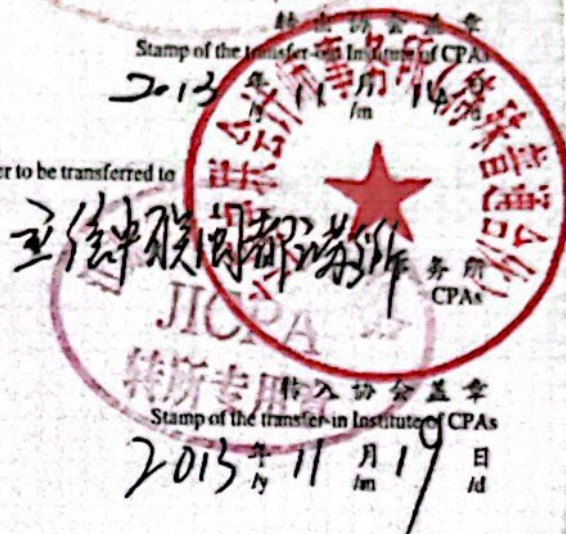 转出协会盖章
Stamp of the transfer-out Institute of CPAs
2013 年 11 月 14 日
/y /m /d
er to be transferred to
立信中联闽都 事务所
CPAs
JICPA
转所专用章
转入协会盖章
Stamp of the transfer-in Institute of CPAs
2013 年 11 月 19 日
/y /m /d